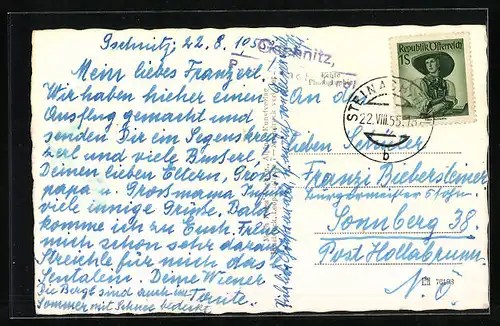 Gschnitz, 22.8.1955
Mein liebes Franzerl.
Wir haben hieher einen
Ausflug gemacht und
senden Dir ein Segenskreu
zerl und viele Busserl.
Deinen lieben Eltern, Groß
papa u. Grossmama
viele innige Grüße. Bald
komme ich zu Euch. Freue
mich schon sehr darauf
Streichle für mich das
Deine Wiener
Die Berge sind auch im
Sommer mit Schnee bedeckt.
Gschnitz,
Republik Österreich
1S
STEINACH
22.VIII.55
b
An den
lieben Schüler
Franzi Biebersteiner
Bürgermeister
Sonnberg 38.
Post Hollabrunn
N.Ö.